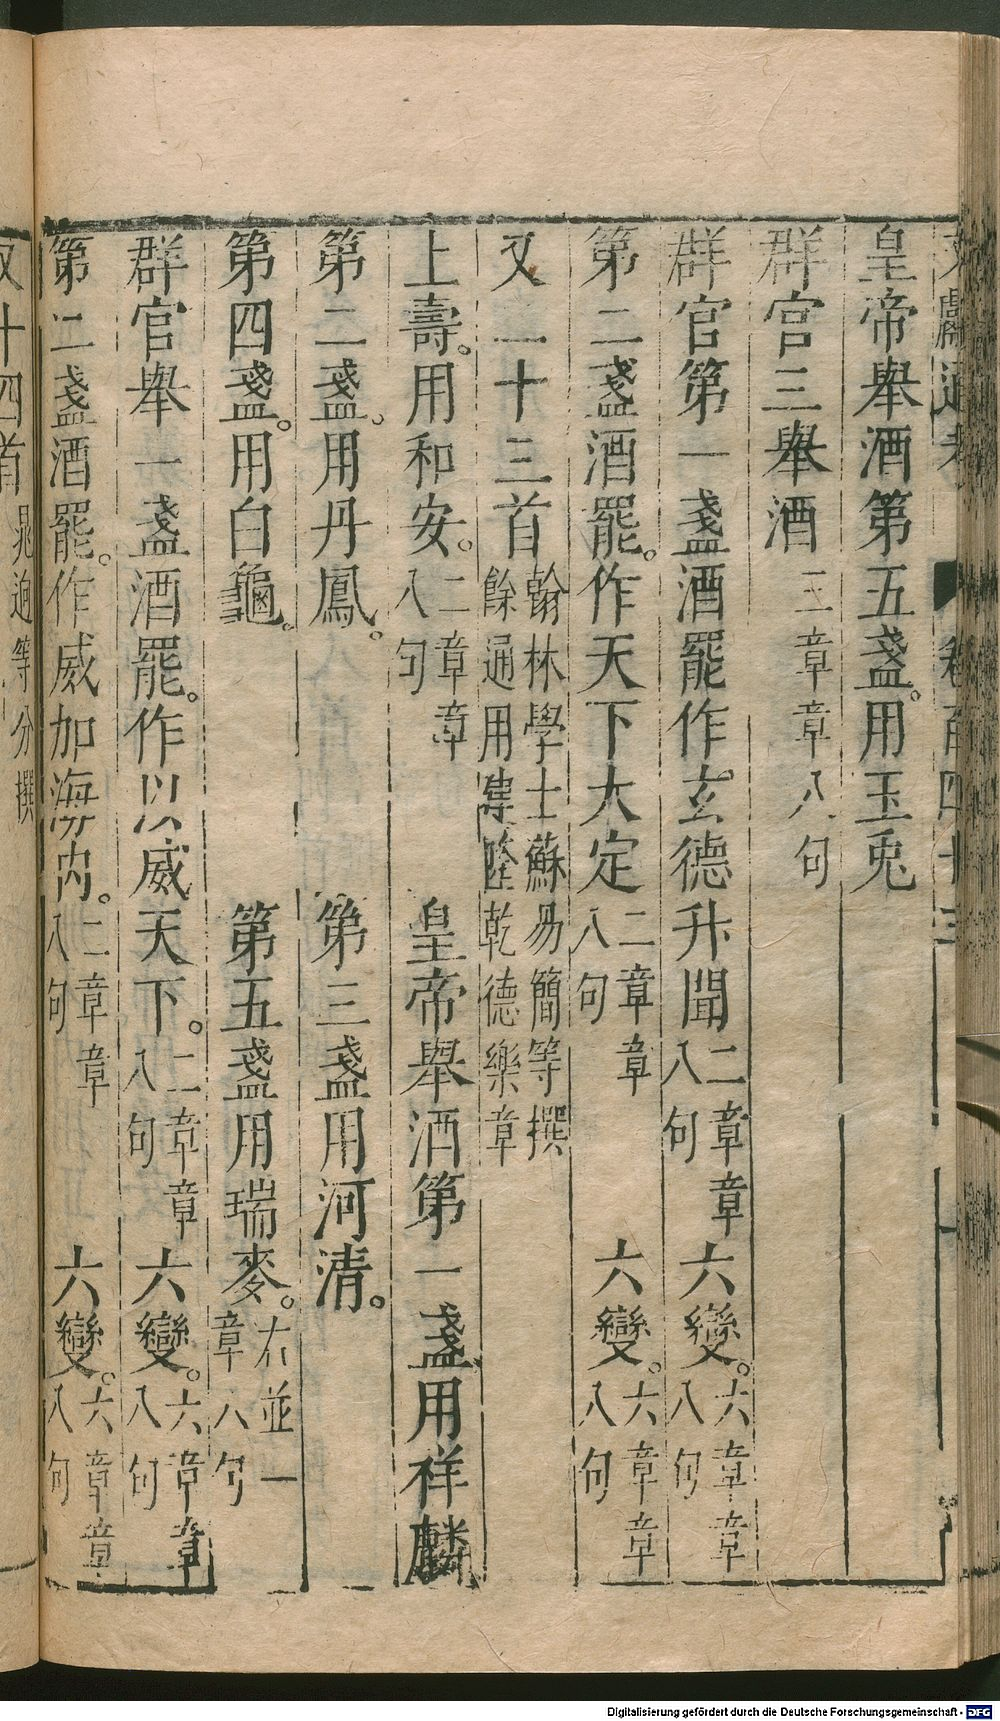 皇帝舉酒第五盞。用玉兎
群官三舉酒 三章章八句
群官第一盞酒罷作玄德升聞 二章章八句 六變。六章章八句
第二盞酒罷。作天下大定 二章章八句 六變。六章章八句
又二十三首 翰林學士蘇易簡等撰餘通用建隆乾德樂章
上壽。用和安。二章章八句 皇帝舉酒第一盞用祥麟
第二盞。用丹鳳。 第三盞用河清。
第四盞。用白龜。 第五盞用瑞麥。右並一章八句
群官舉一盞酒罷。作以威天下。二章章八句 六變。六章章八句
第二盞酒罷。作威加海內。二章章八句 六變。六章章八句
又十四首 晁逈等分撰
Digitalisierung gefördert durch die Deutsche Forschungsgemeinschaft - DFG